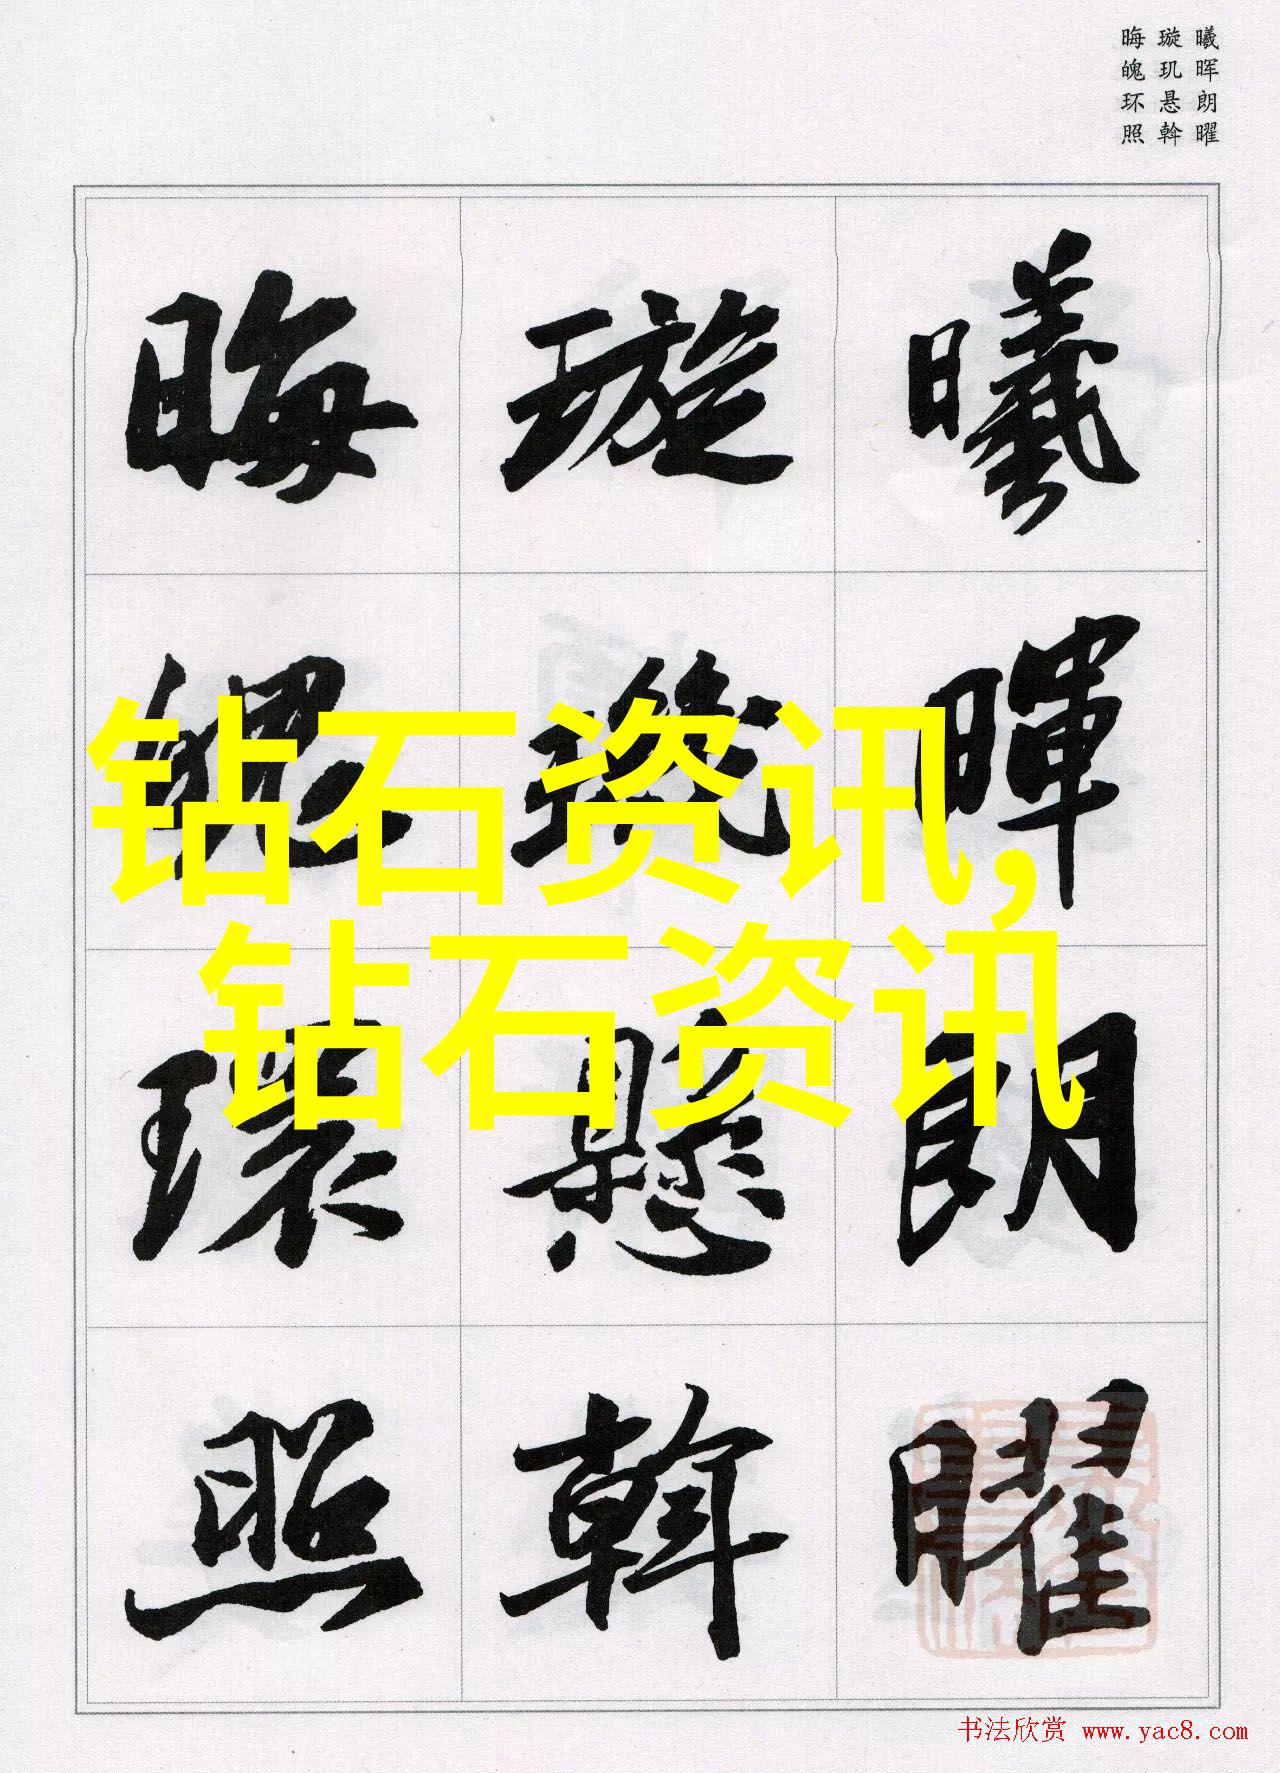 曦晖朗曜
璇玑悬斡
晦魄环照
曦暉朗曜
璇璣懸斡
晦魄環照
钻石资讯,
钻石资讯
书法欣赏 www.yac8.com